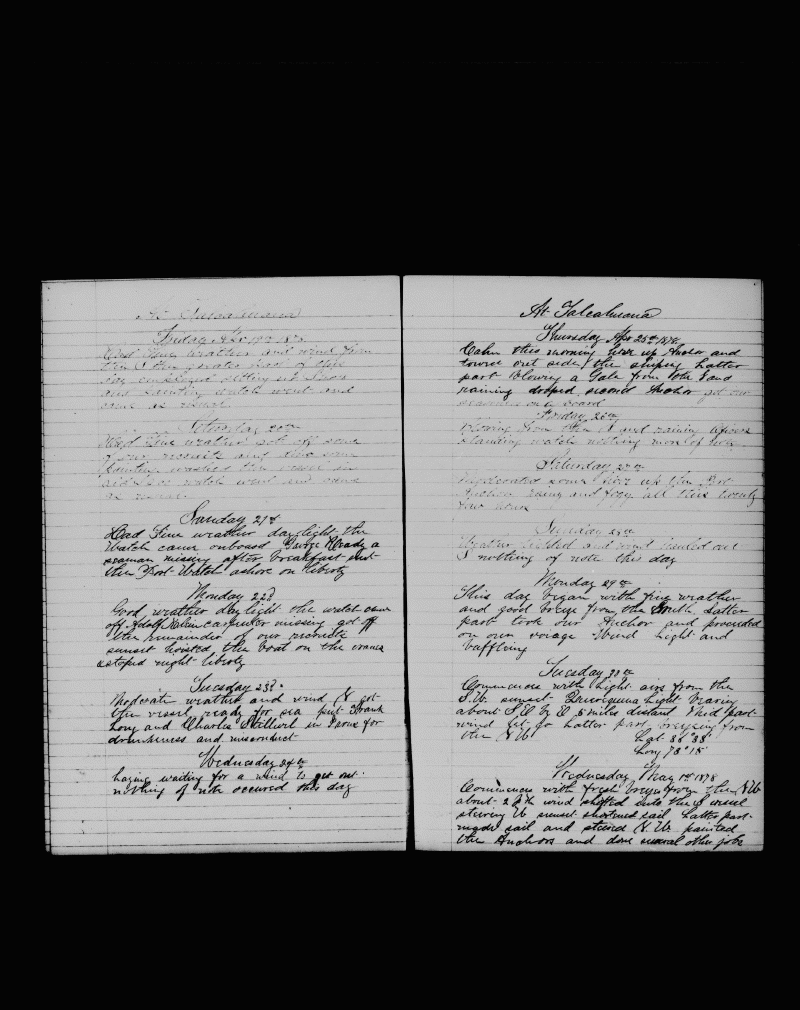 At Talcahuana
Friday Apr 19th 1878
Had Fine weather and wind from
the S the greater part of this
day employed setting up
and painting watch went and
came as usual
Saturday 20th
Had Fine weather got off some
of our recruits and done some
painting washed the vessel in
side watch went and came
as usual
Sunday 21st
Had Fine weather day light the
Watch came onboard George Ready a
seaman missing after breakfast sent
the Port Watch ashore on liberty
Monday 22d
Good weather day light the watch came
off Adolf carpenter missing got off
the remainder of our recruits
sunset hoisted the boat on the cranes
stoped night liberty
Tuesday 23d
Moderate weather and wind N got
the vessel ready for sea put Frank
Long and Charles in Irons for
drunkiness and misconduct
Wednesday 24th
Laying waiting for a wind to get out
nothing of note occured this day
At Talcahuana
Thursday Apr 25th 1878
Calm this morning hove up Anchor and
towed out side the shiping Latter
part blowing a Gale from the and
raining droped second Anchor got our
on board
Friday 26th
Blowing from the N and raining officers
standing watch nothing more of note
Saturday 27th
Moderated some hove up the Port
Anchor rainy and fogy all this twenty
four hours
Sunday 28th
Weather and wind hauled out
S nothing of note this day
Monday 29th
This day began with fine weather
and good breeze from the South. Latter
part took our Anchor and proceeded
on our voyage Wind Light and
baffling
Tuesday 30th
Commences with Light airs from the
S.W. sunset Quiriquina Light bearing
about S.E. by E 5 miles distant Mid part
wind Latter part breezing from
the N.W. Lat 36° 38'
Long 73° 15'
Wednesday May 1st 1878
Commences with fresh breeze from the N.W
about 2 P.m wind shifted into the S vessel
steering W sunset shortened sail Latter part
made sail and steered N.W. painted
the Anchors and done several other jobs